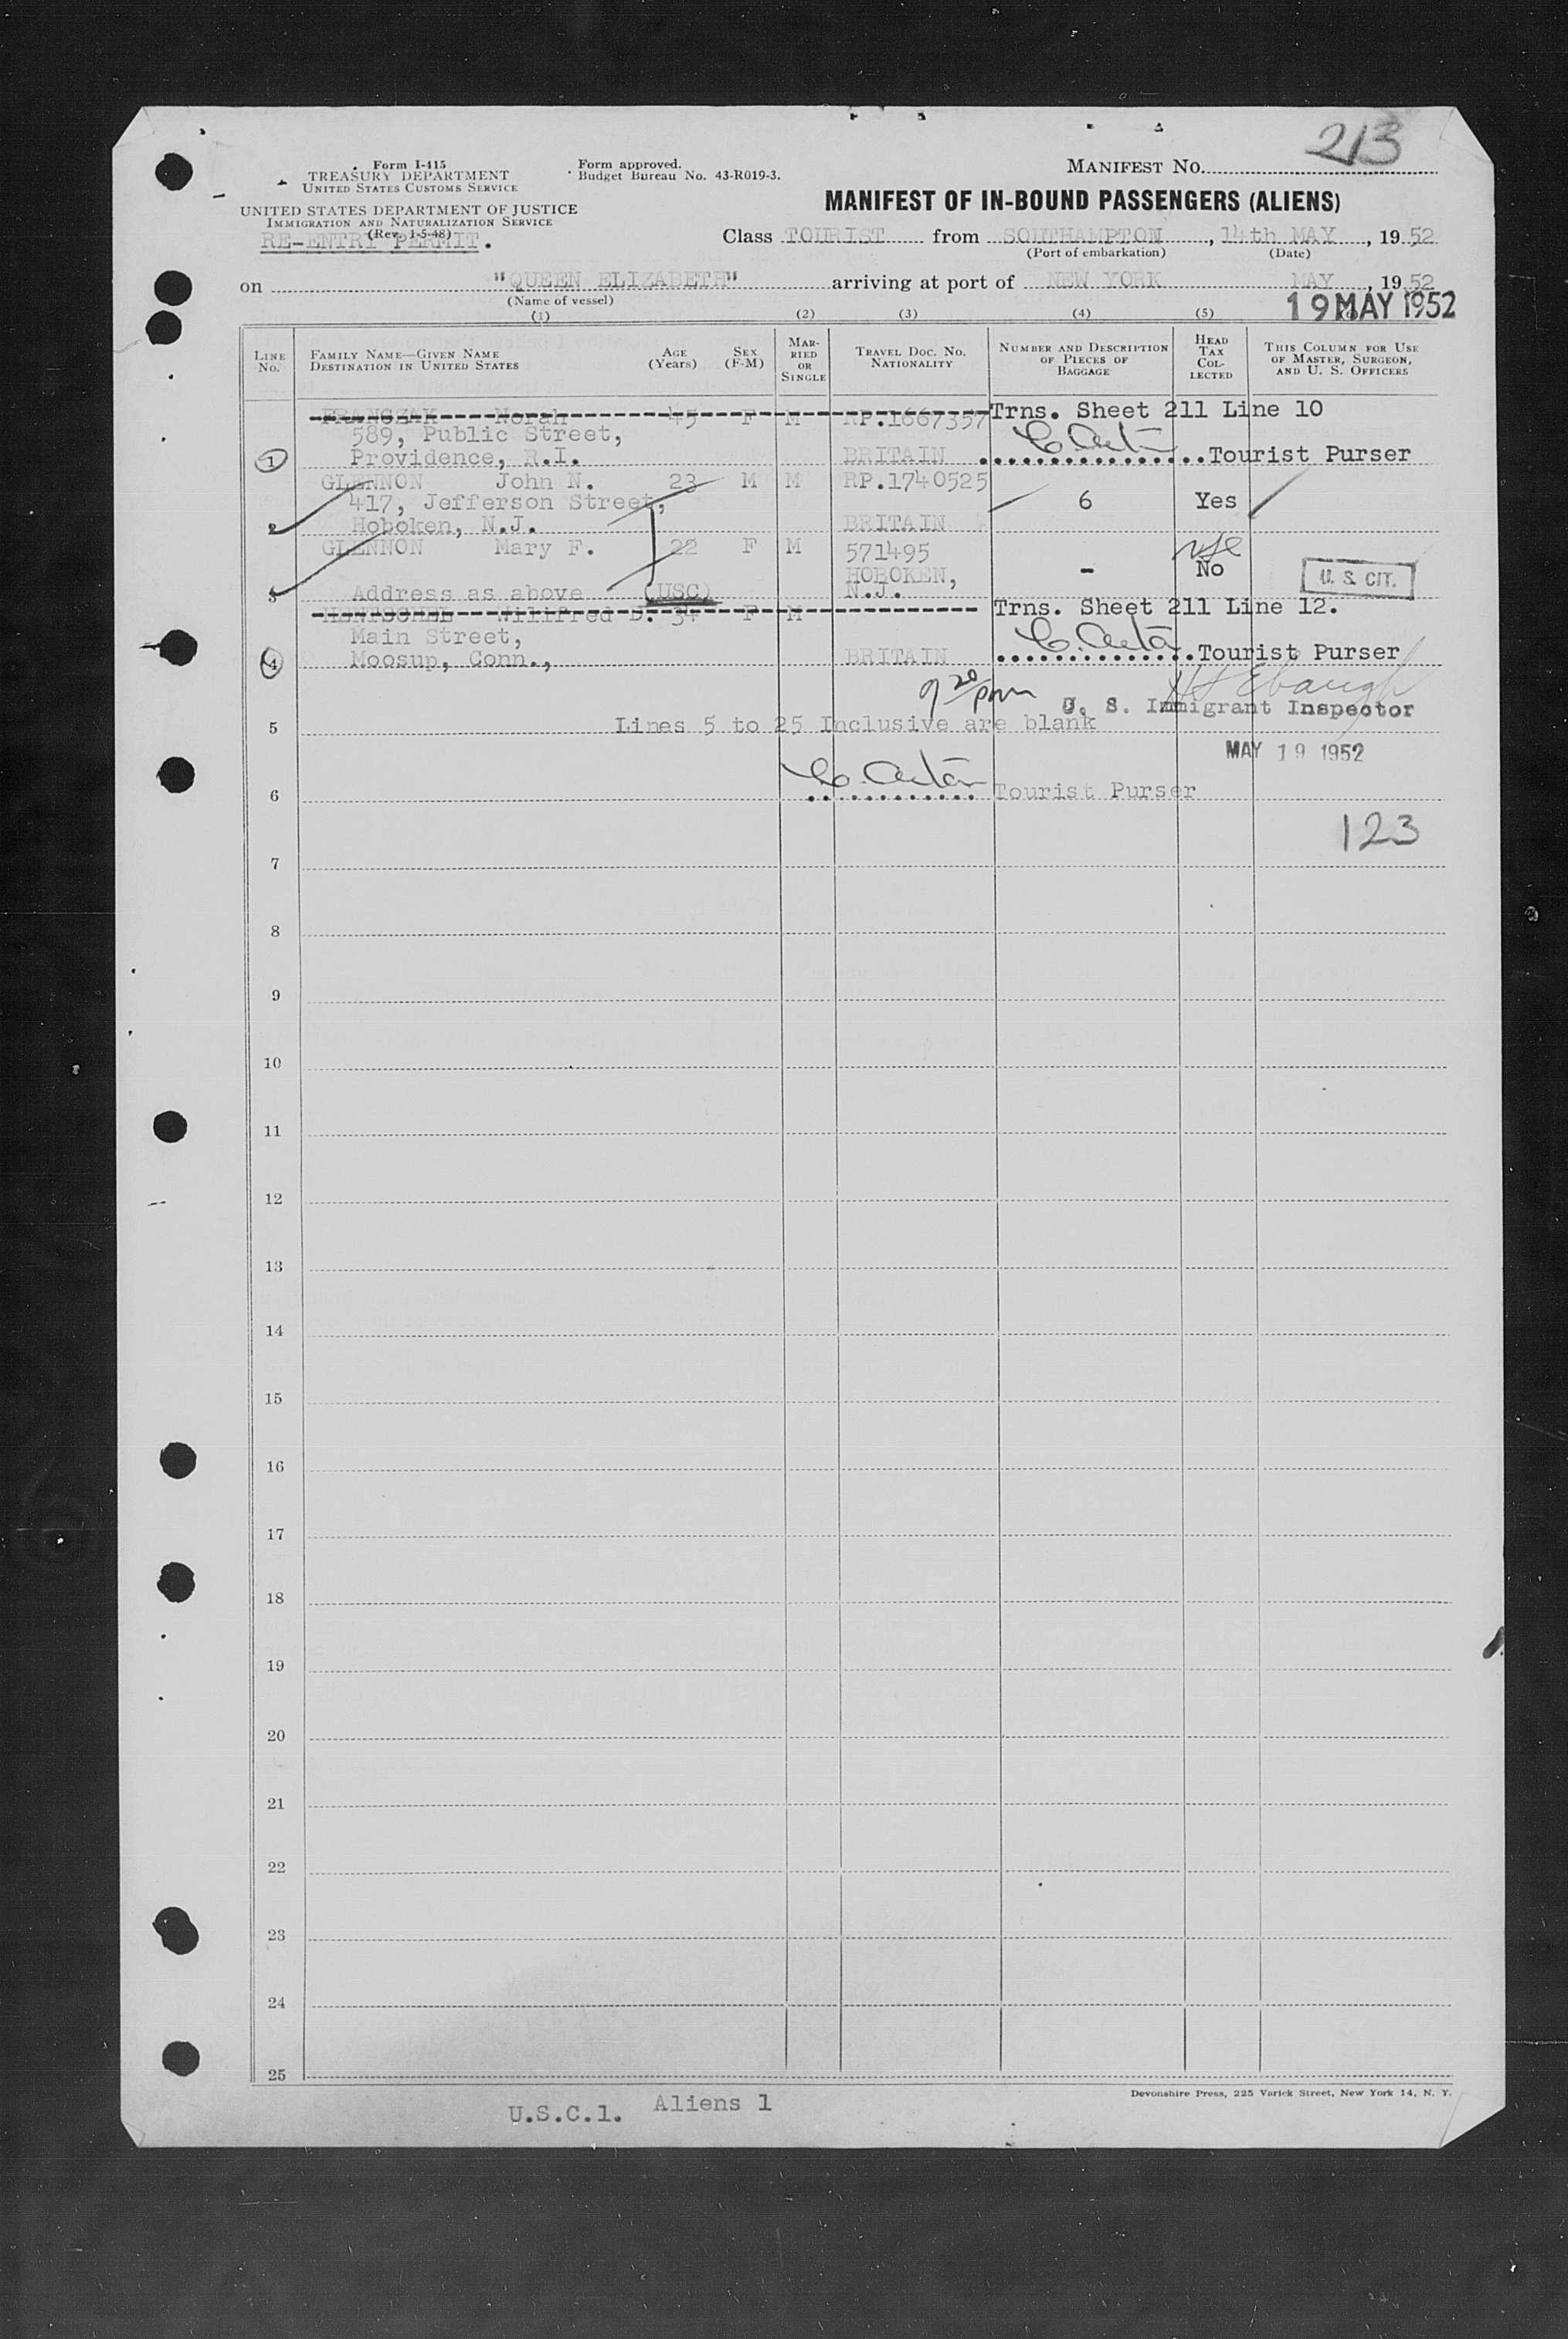 213
Form I-415
TREASURY DEPARTMENT
UNITED STATES CUSTOMS SERVICE
UNITED STATES DEPARTMENT OF JUSTICE
IMMIGRATION AND NATURALIZATION SERVICE
(Rev. 1-5-48)
RE-ENTRY PERMIT.
Form approved.
Budget Bureau No. 43-R019-3.
MANIFEST NO.
MANIFEST OF IN-BOUND PASSENGERS (ALIENS)
Class TOURIST from SOUTHAMPTON, 14th MAY, 1952
(Port of embarkation) (Date)
on "QUEEN ELIZABETH" arriving at port of NEW YORK MAY, 1952
(Name of vessel)
19 MAY 1952
(1) (2) (3) (4) (5)
LINE NO. FAMILY NAME—GIVEN NAME DESTINATION IN UNITED STATES AGE (Years) SEX (F-M) MARRIED OR SINGLE TRAVEL DOC. NO. NATIONALITY NUMBER AND DESCRIPTION OF PIECES OF BAGGAGE HEAD TAX COLLECTED THIS COLUMN FOR USE OF MASTER, SURGEON, AND U. S. OFFICERS
FRANCZAK Norah 45 F M RP.1667357 Trns. Sheet 211 Line 10
589, Public Street,
1 Providence, R.I. BRITAIN Tourist Purser
GLENNON John N. 23 M M RP.1740525
417, Jefferson Street, 6 Yes
2 Hoboken, N.J. BRITAIN
GLENNON Mary F. 22 F M 571495
HOBOKEN, No
3 Address as above (USC) N.J. U. S. CIT.
HENTSCHEL Wilifred D. 34 F M Trns. Sheet 211 Line 12.
Main Street,
4 Moosup, Conn., BRITAIN Tourist Purser
9 20/pm
U. S. Immigrant Inspector
5 Lines 5 to 25 Inclusive are blank
MAY 19 1952
6 Tourist Purser
123
7
8
9
10
11
12
13
14
15
16
17
18
19
20
21
22
23
24
25
Devonshire Press, 225 Varick Street, New York 14, N. Y.
U.S.C.1. Aliens 1